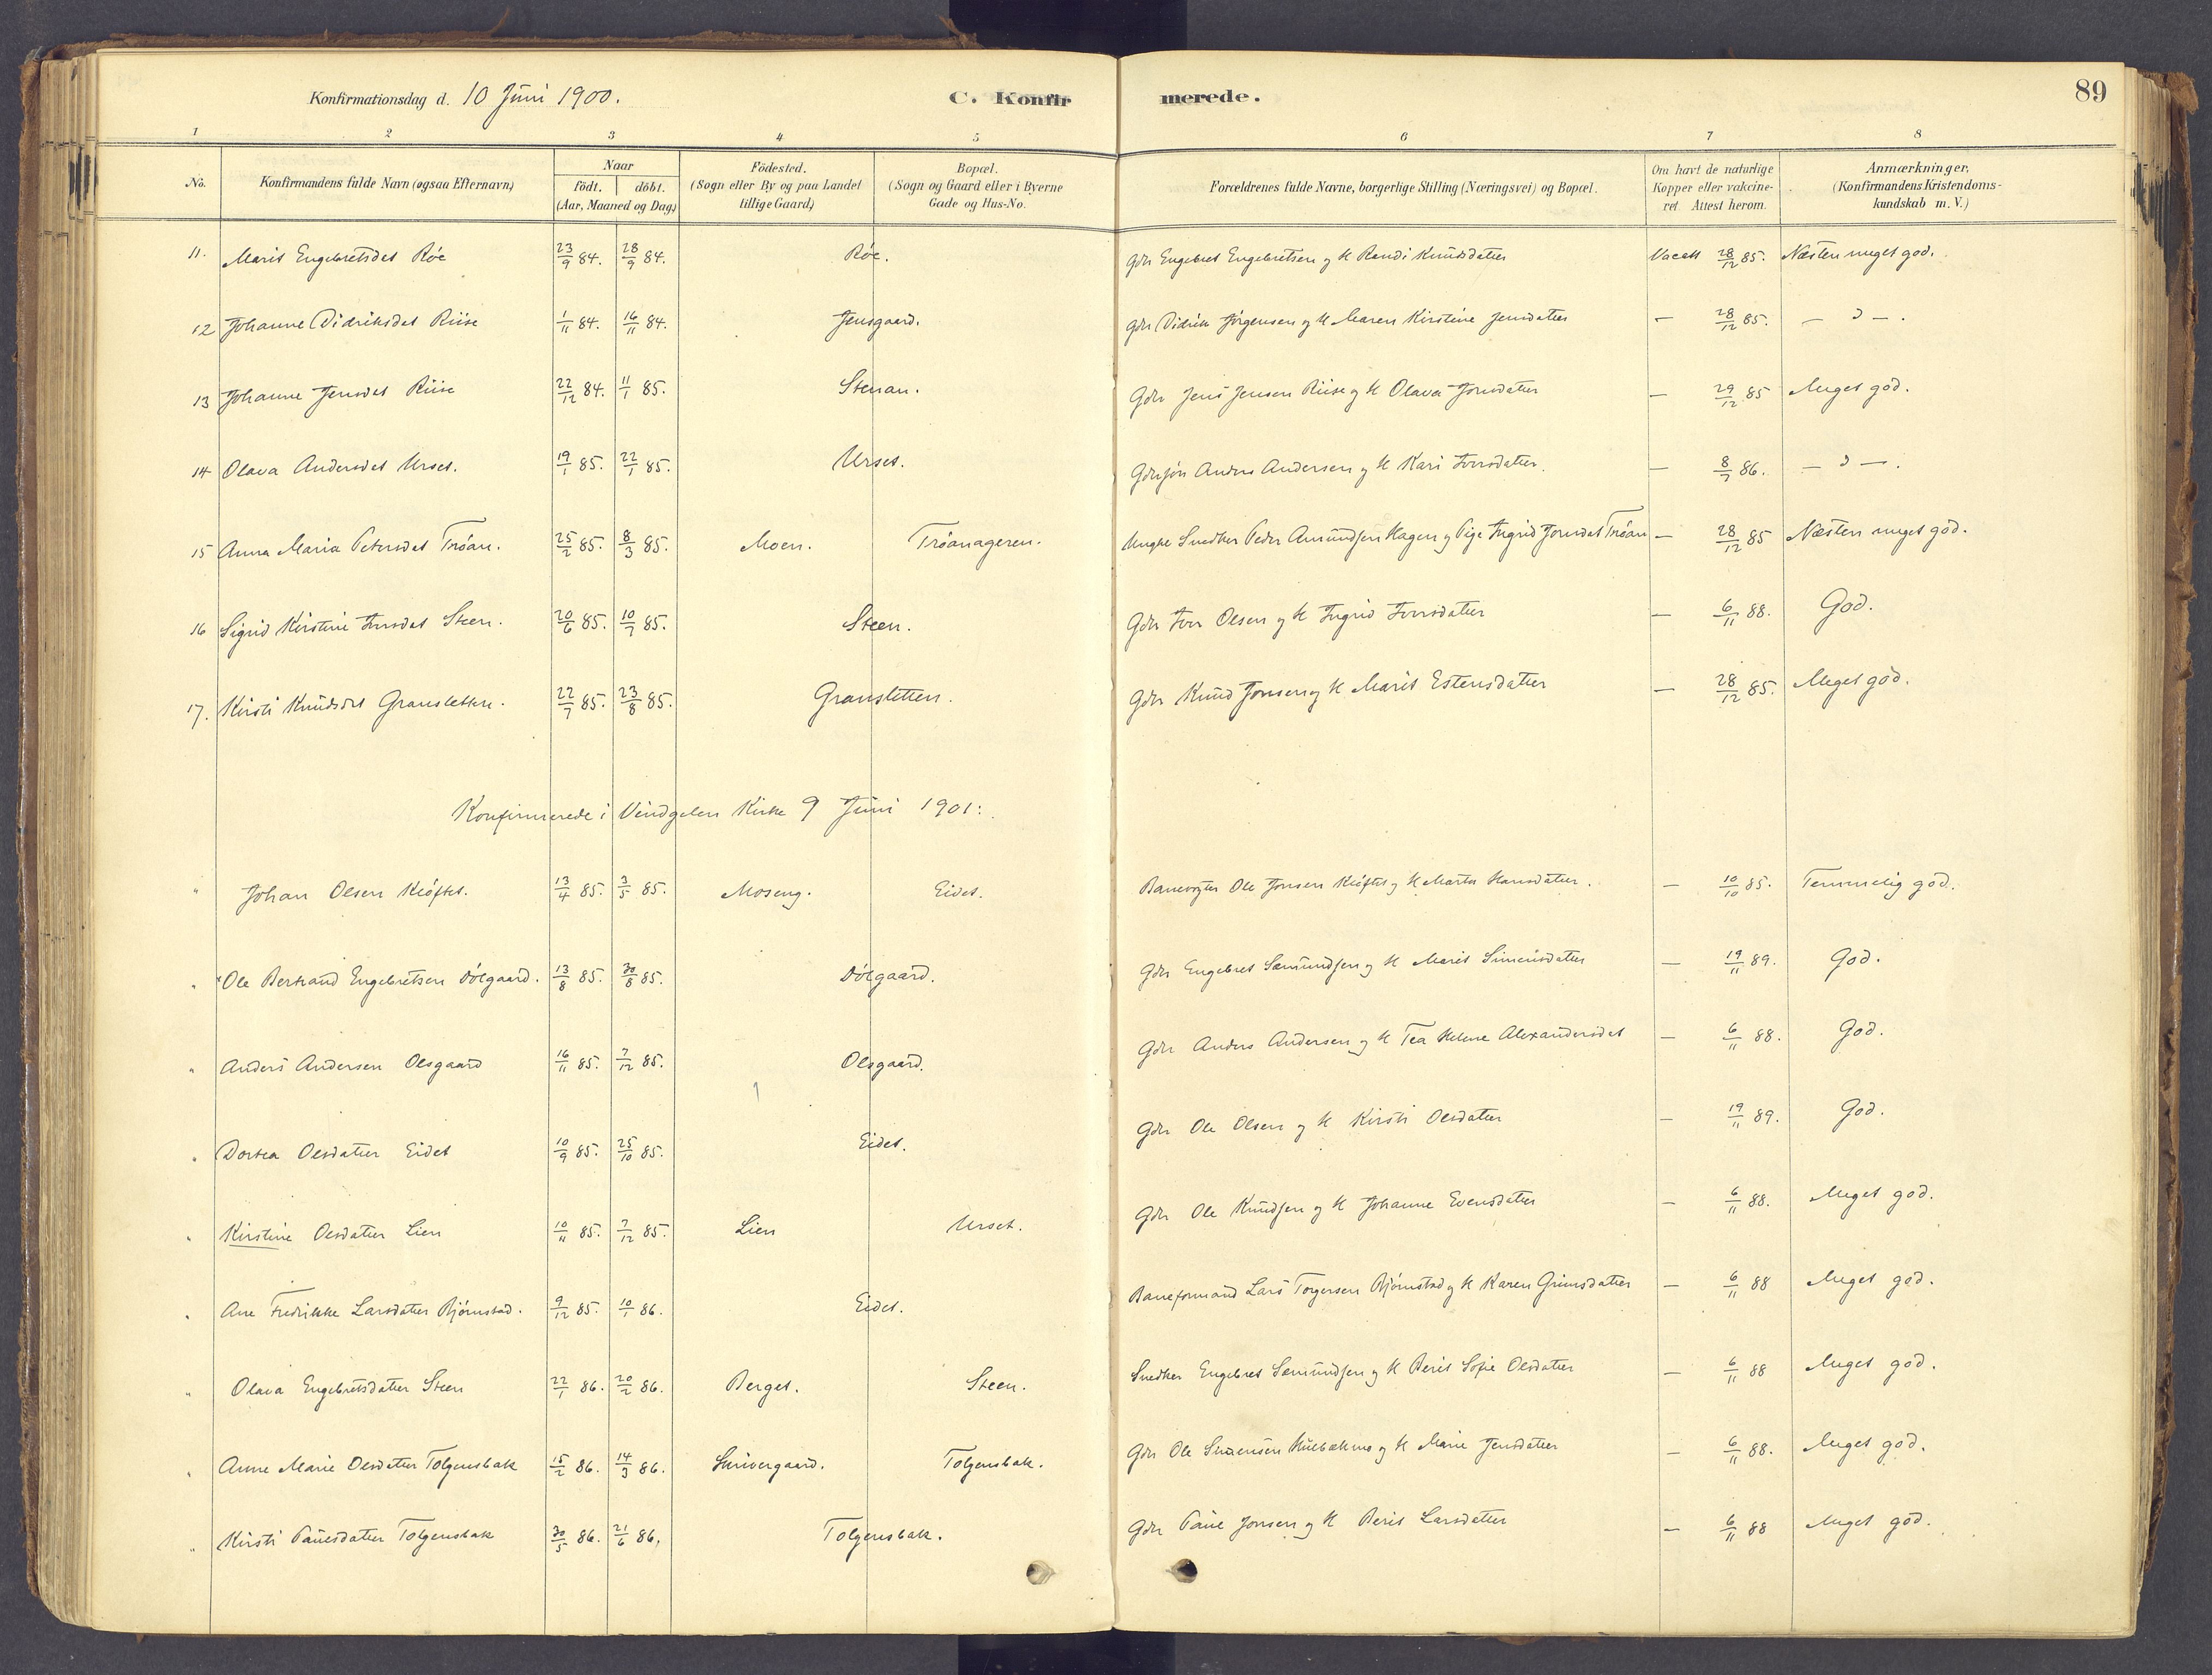 Konfirmationsdag d. 10 Juni 1900. C. Konfirmerede. 89
1 2 3 4 5 6 7 8
No. Konfirmandens fulde Navn (ogsaa Efternavn) Naar födt. döbt. (Aar, Maaned og Dag) Födested. (Sogn eller By og paa Landet tillige Gaard) Bopæl. (Sogn og Gaard eller i Byerne Gade og Hus-No. Forældrenes fulde Navne, borgerlige Stilling (Næringsvei) og Bopæl. Om havt de naturlige Kopper eller vakcineret. Attest herom. Anmærkninger. (Konfirmandens Kristendomskundskab m. V.)
11. Marit Engebretsdat Röe 23/9 84. 28/9 84. Röe. Gdr Engebret Engebretsen og H Randi Knudsdatter Vacc 28/12 85. Næsten meget god.
12 Johanne Didriksdat Riise 1/11 84. 16/11 84. Jensgaard. Gdr Didrik Jörgensen og H Maren Kirstine Jensdatter — 28/12 85. — " — .
13 Johanne Jensdat Riise 22/12 84. 11/1 85. Stenan. Gdr Jens Jensen Riise og H Olava Jonsdatter — 29/12 85 Meget god.
14 Olava Andersdat Urset. 19/1 85. 22/1 85. Urset. Anders Andersen og H Kari Iversdatter. — 8/7 86. — " — .
15 Anna Maria Petersdat Tröan. 25/2 85. 8/3 85. Moen. Tröanageren. Ungke Snedker Peder Amundsen Hagen og Pige Ingrid Jonsdat Tröan — 28/12 85 Næsten meget god.
16 Sigrid Kirstine Iversdat Steen. 20/6 85. 10/7 85. Steen. Gdr Iver Olsen og H Ingrid Iversdatter — 6/11 88. God.
17. Kirsti Knudsdat Gransletten. 22/7 85. 23/8 85. Gransletten. Gdr Knud Jonsen og H Marit Estensdatter — 28/12 85. Meget god.
Konfirmerede i Vindgelen Kirke 9 Juni 1901:
" Johan Olsen Klöftet. 13/4 85. 3/5 85. Moseng. Eidet. Banevogter Ole Jonsen Klöftet og H Marta Hansdatter. — 10/10 85. Temmelig god.
" Ole Bertrand Engebretsen Dölgaard. 13/8 85. 30/8 85. Dölgaard. Gdr Engebret Sæmundsen og H Marit Simensdatter — 19/11 89. God.
" Anders Andersen Olsgaard 16/11 85. 7/12 85. Olsgaard. Gdr Anders Andersen og H Tea Helene Alexandersdat — 6/11 88. God.
" Dortea Olesdatter Eidet 10/9 85. 25/10 85. Eidet. Gdr Ole Olsen og H Kirsti Olesdatter — 19/11 89. God.
" Kirstine Olesdatter Lien 10/11 85. 7/12 85. Lien Urset. Gdr Ole Knudsen og H Johanne Evensdatter — 6/11 88. Meget god.
" Ane Fredrikke Larsdatter Björnstad. 9/12 85. 10/1 86. Eidet. Baneformand Lars Torgersen Björnstad og H Karen Grimsdatter — 6/11 88 Meget god.
" Olava Engebretsdatter Steen 22/1 86. 20/2 86. Berget. Steen. Snedker Engebret Sæmundsen og H Berit Sofie Olesdatter — 6/11 88 Meget god.
" Anne Marie Olesdatter Tolgensbak 15/2 86. 14/3 86. Skrivergaard. Tolgensbak. Gdr Ole Simensen og H Marie Jensdatter — 6/11 88. Meget god.
" Kirsti Paulsdatter Tolgensbak 30/5 86. 21/6 86. Tolgensbak. Gdr Paul Jonsen og H Berit Larsdatter — 6/11 88 Meget god.